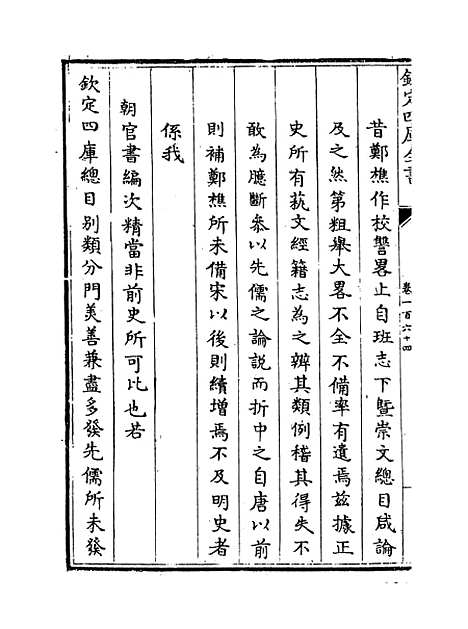 欽定四庫全書
卷一百六十四
昔鄭樵作校讐畧止自班志下暨崇文總目咸論
及之然第粗舉大畧不全不備率有遺焉兹據正
史所有蓺文經籍志為之辨其類例稽其得失不
敢為臆斷叅以先儒之論説而折中之自唐以前
則補鄭樵所未備宋以後則續增焉不及明史者
係我
朝官書編次精當非前史所可比也若
欽定四庫總目別類分門美善兼盡多發先儒所未發